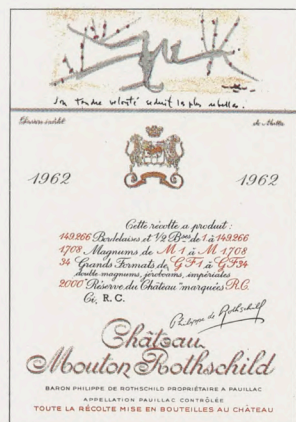 Son tendre velouté séduit les plus rebelles.
Dessin inédit de Matta
1962 1962
Cette récolte a produit :
149.266 Bordelaises et 1/2 Bses de 1 à 149.266
1708 Magnums de M 1 à M 1708
34 Grands Formats de GF1 à GF34
double magnums, jéroboams, impériales
2000 "Réserve du Château" marquées R.C.
Ci, R. C.
Philippe de Rothschild
Château
Mouton Rothschild
BARON PHILIPPE DE ROTHSCHILD PROPRIÉTAIRE A PAUILLAC
APPELLATION PAUILLAC CONTRÔLÉE
TOUTE LA RÉCOLTE MISE EN BOUTEILLES AU CHÂTEAU